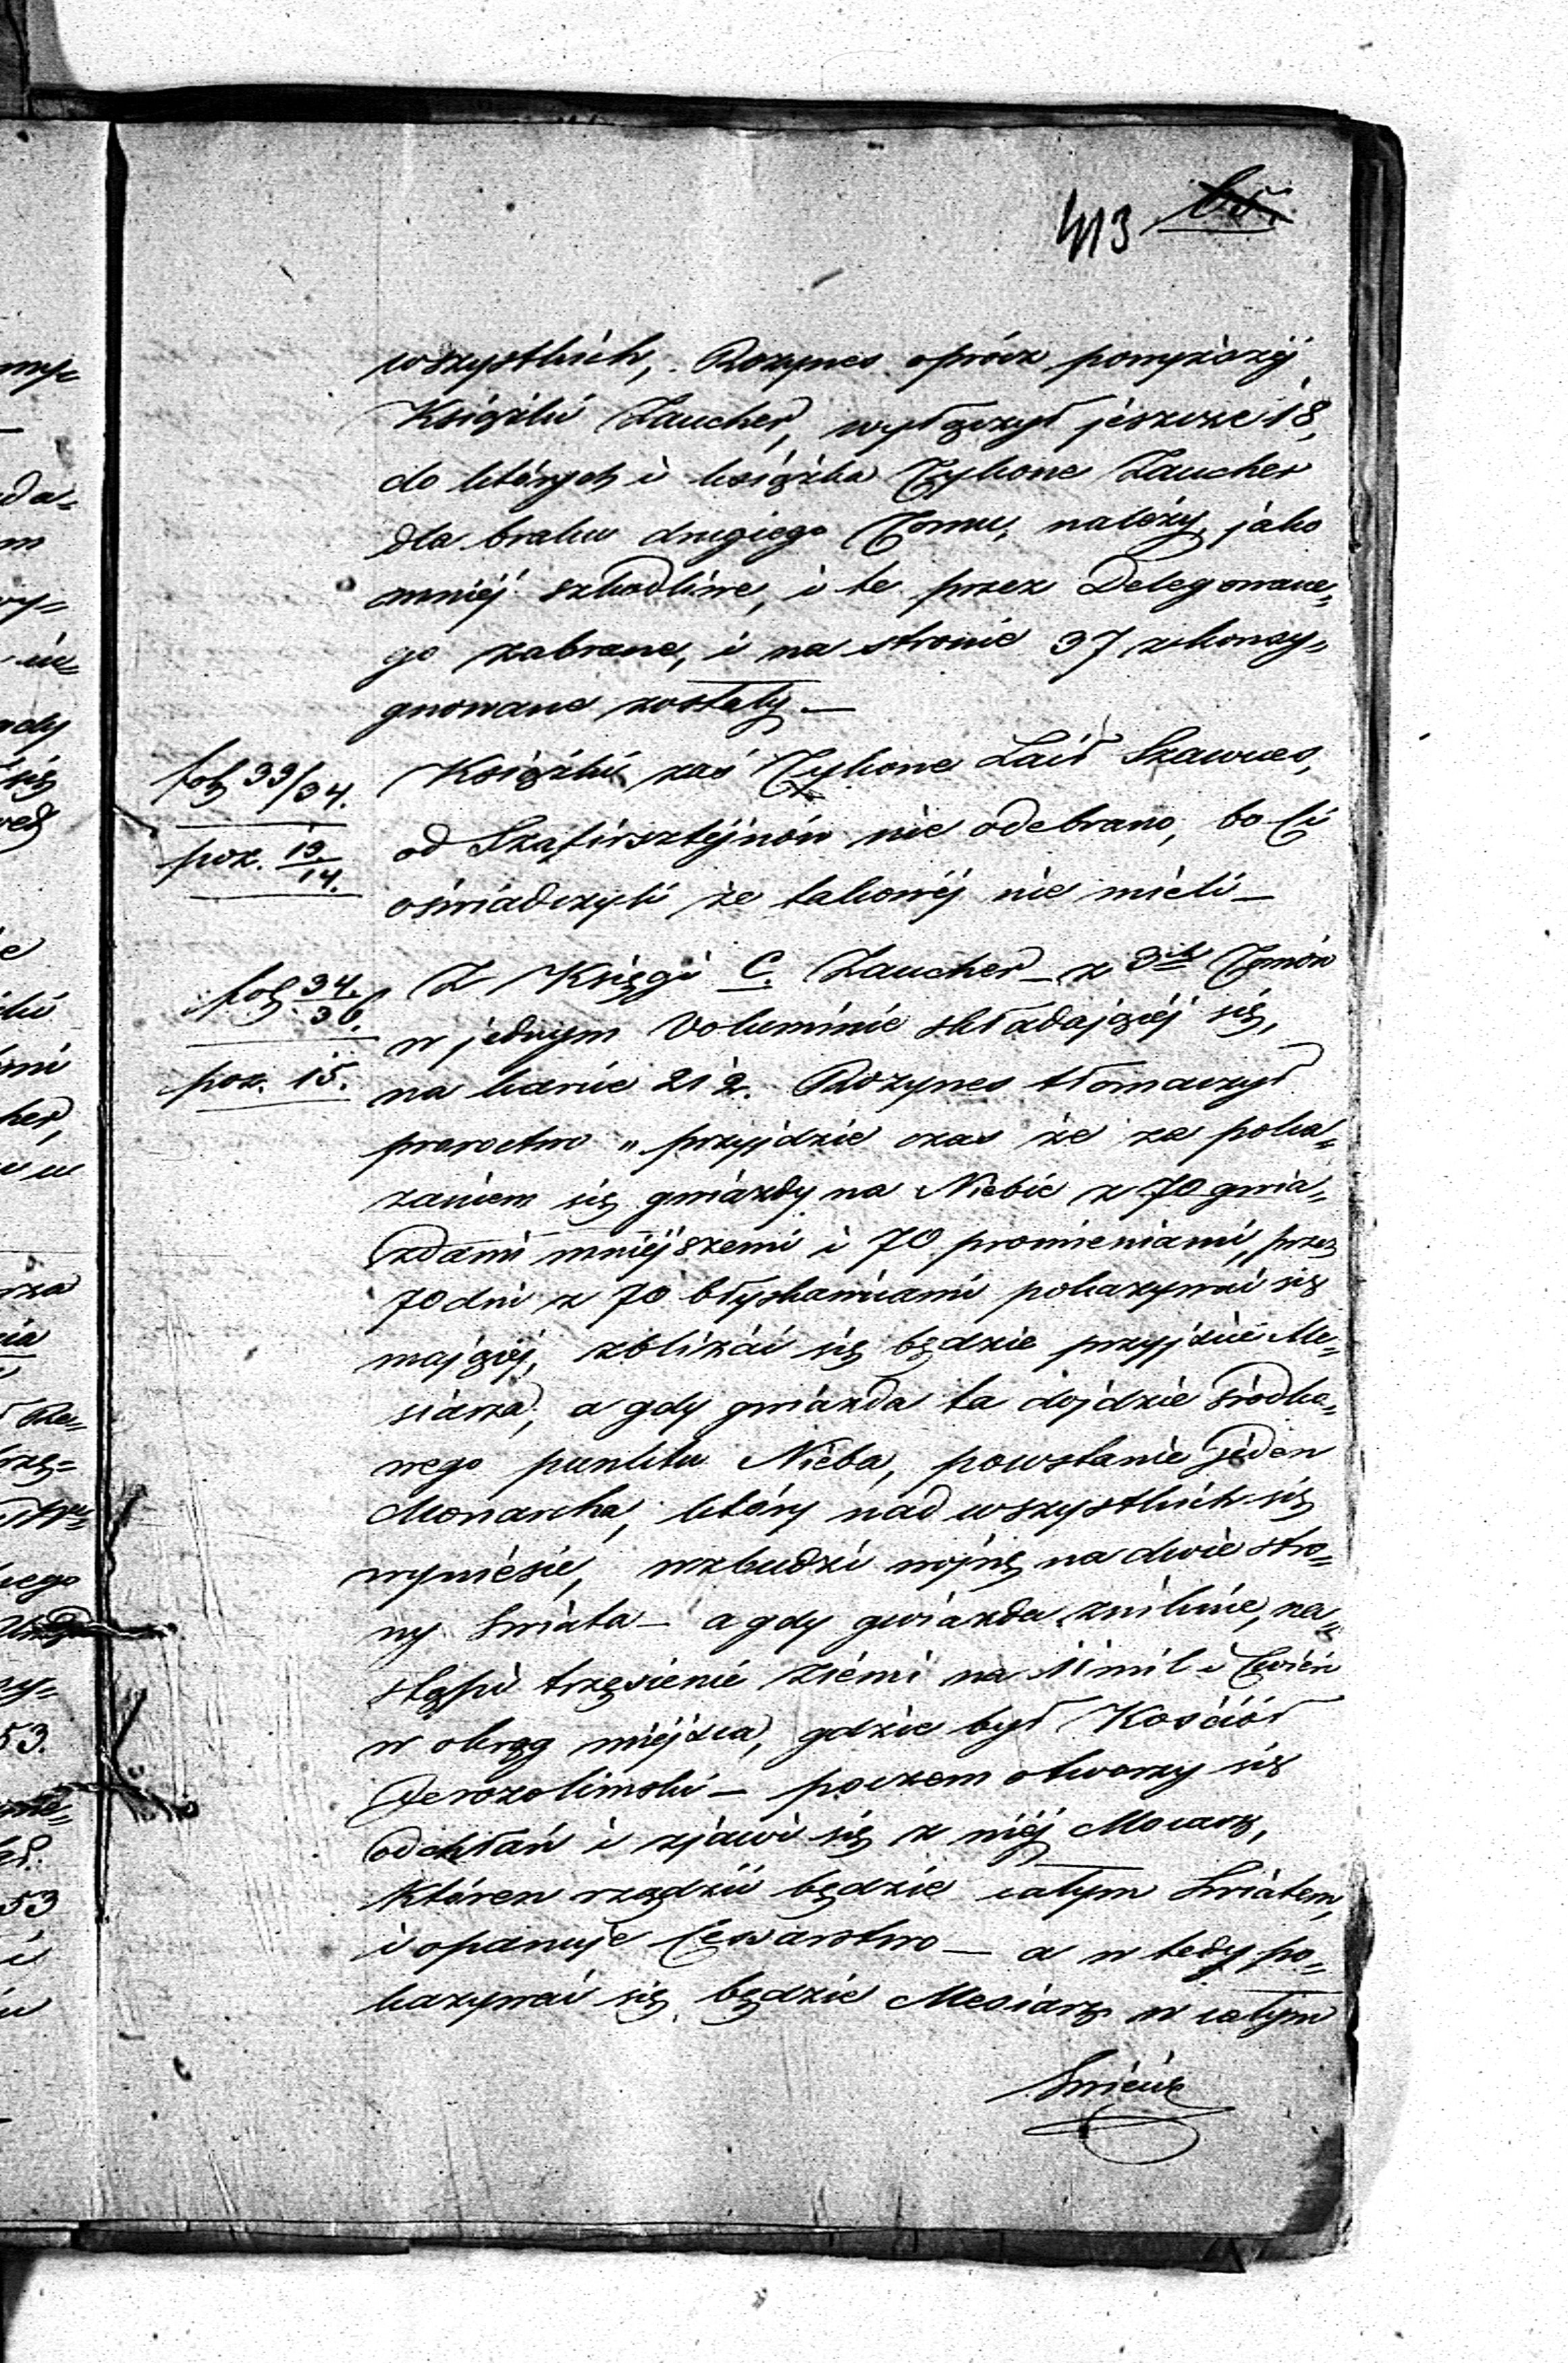 413
wszystkich, Rozynes oprócz powyższéj
Książki Zaucher, wyłączył jeszcze 18,
do których i książka Tykone Zaucher
dla braku drugiego Tomu, należy, jako
mniéj szkodliwe, i te przez Delegowane„
go zabrane, i na stronie 37 zkonsy„
gnowane zostały.—
fol 33/34.
poz. 13./14.
Książki zaś Tykone Lail Szawues,
od Szafirsztejnów nie odebrano, bo Ci
oświadczyli że takowéj nie mieli—
fol 34./36.
poz. 15.
Z Księgi C. Zaucher — z 3ch Tomów
w jednym Voluminie składającéj się,
na karcie 212. Rozynes tłomaczył
proroctwo „przyjdzie czas że za poka„
zaniem się gwiazdy na Niebie z 70 gwia„
zdami mniéjszemi i 70 promieniami, przez
70 dni z 70 błyskaniami pokazywać się
majacéj, zbliżać się będzie przyjście Me„
siasza, a gdy gwiazda ta dojdzie środko„
wego punktu Nieba, powstanie jeden
Monarcha, który nad wszystkich się
wyniesie, wzbudzi wojnę na dwie stro„
ny Świata — a gdy gwiazda zniknie, na„
stąpi trzęsienie ziemi na 11 mil i Ćwierć
w okrąg miéjsca, gdzie był Kościół
Jerozolimski — poczem otworzy się
odchłań i zjawi się z niéj Mocarz,
któren rządzić będzie całym Światem,
i opanuje Cesarstwo — a w tedy po„
kazywać się będzie Mesiasz w całym
Świecie